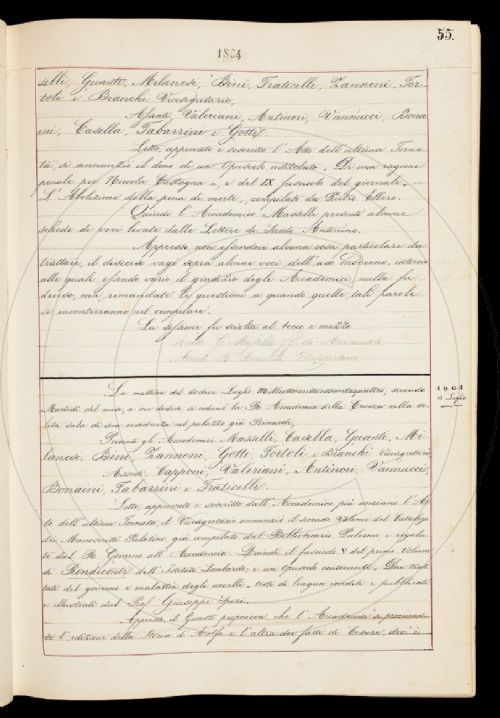 55.
1864
selli, Guasti, Milanesi, Bini, Fraticelli, Zannoni, Tor-
toli e Bianchi Vicesegretario,
Assenti, Valeriani, Antinori, Vannucci, Bonai
ni, Casella, Tabarrini e Gotti.
Letto, approvato e soscritto l'Atto dell'ultima Torna
ta, si annunzia il dono di un Opuscolo intitolato. Di una ragione
penale per Niccola Castagna, e del IX fascicolo del giornale,
L'Abolizione della pena di morte, compilato da Pietro Ellero.
Quindi l'Accademico Masselli presentò alcune
schede di voci levate dalle Lettere di Santo Antonino.
Appresso non essendovi alcuna cosa particolare da
trattare, il discorso vagò sopra alcune voci dell'uso moderno, intorno
alle quali essendo vario il giudizio degli Accademici nulla fu
deciso, ma rimandate le questioni a quando quelle tali parole
si incontreranno nel compilare.
La sessione fu sciolta al tocco e mezzo
1864
12 Luglio
La mattina del dodici Luglio Milleottocentosessantaquattro, secondo
Martedì del mese, a ore dodici si adunò la R. Accademia della Crusca nella so-
lita sala di sua residenza nel palazzo già Riccardi.
Presenti gli Accademici Masselli, Casella, Guasti, Mi-
lanesi, Bini, Zannoni, Gotti Tortoli e Bianchi Vicesegretario
Assenti, Capponi, Valeriani, Antinori, Vannucci,
Bonaini, Tabarrini e Fraticelli.
Letto approvato e soscritto dall'Accademico più anziano l'At-
to dell'ultima Tornata, il Vicesegretario annunziò il secondo volume del Catalogo
dei Manoscritti Palatini già compilato dal Bibliotecario Palermo e regala
to dal R. Governo all'Accademia. Quindi il fascicolo V del primo volume
di Rendiconti dell'Istituto Lombardo, e un Opuscolo contenente, Due trat
tati del governo e malattie degli uccelli, testi di lingua inediti e pubblicati
e illustrati dal Prof. Giuseppe Spezi.
Appresso, il Guasti proponeva, che l'Accademia se procuras-
se l'edizione della Storia di Aiolfo e l'altra dei fatti di Cesare, dov'è